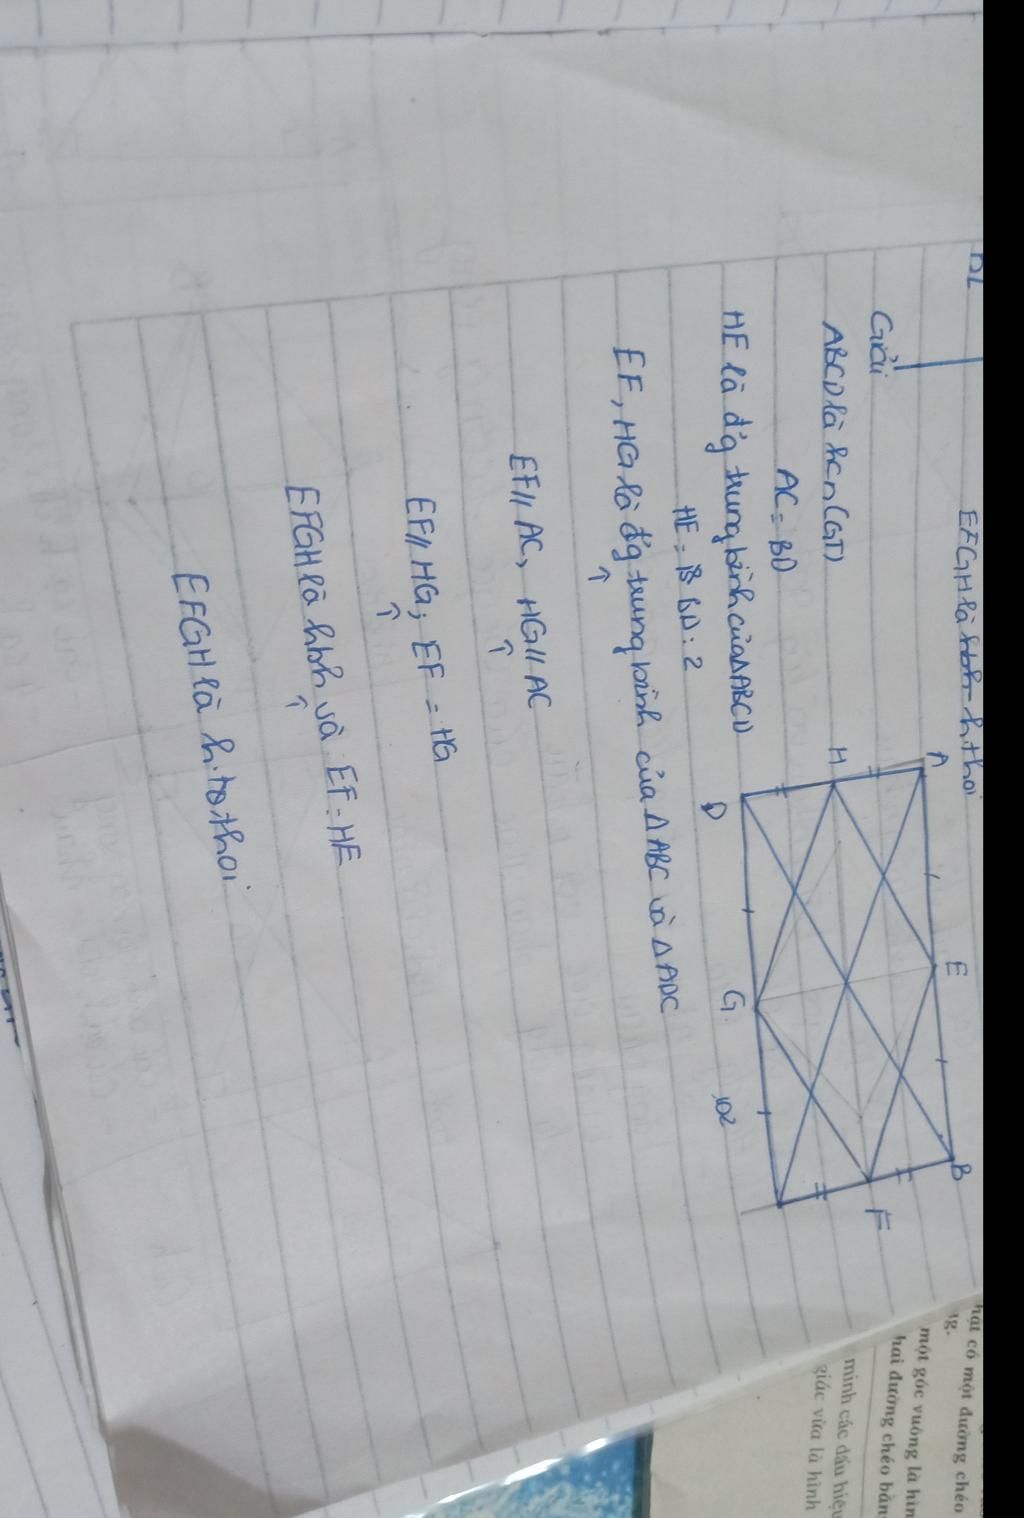 KL
EFGH là hbh h.thoi
A
E
B
H
F
D
G
Giải
ABCD là hcn (GT)
AC = BD
HE là đ'g trung bình của ΔABCD
HE = BD : 2
EF, HG là đ'g trung bình của Δ ABC và Δ ADC
⇑
EF // AC, HG // AC
⇑
EF // HG; EF = HG
⇑
EFGH là hbh và EF = HE
⇑
EFGH là h.thoi
hật có một đường chéo
ng.
một góc vuông là hìn
hai đường chéo bằn
minh các dấu hiệu
giác vừa là hình